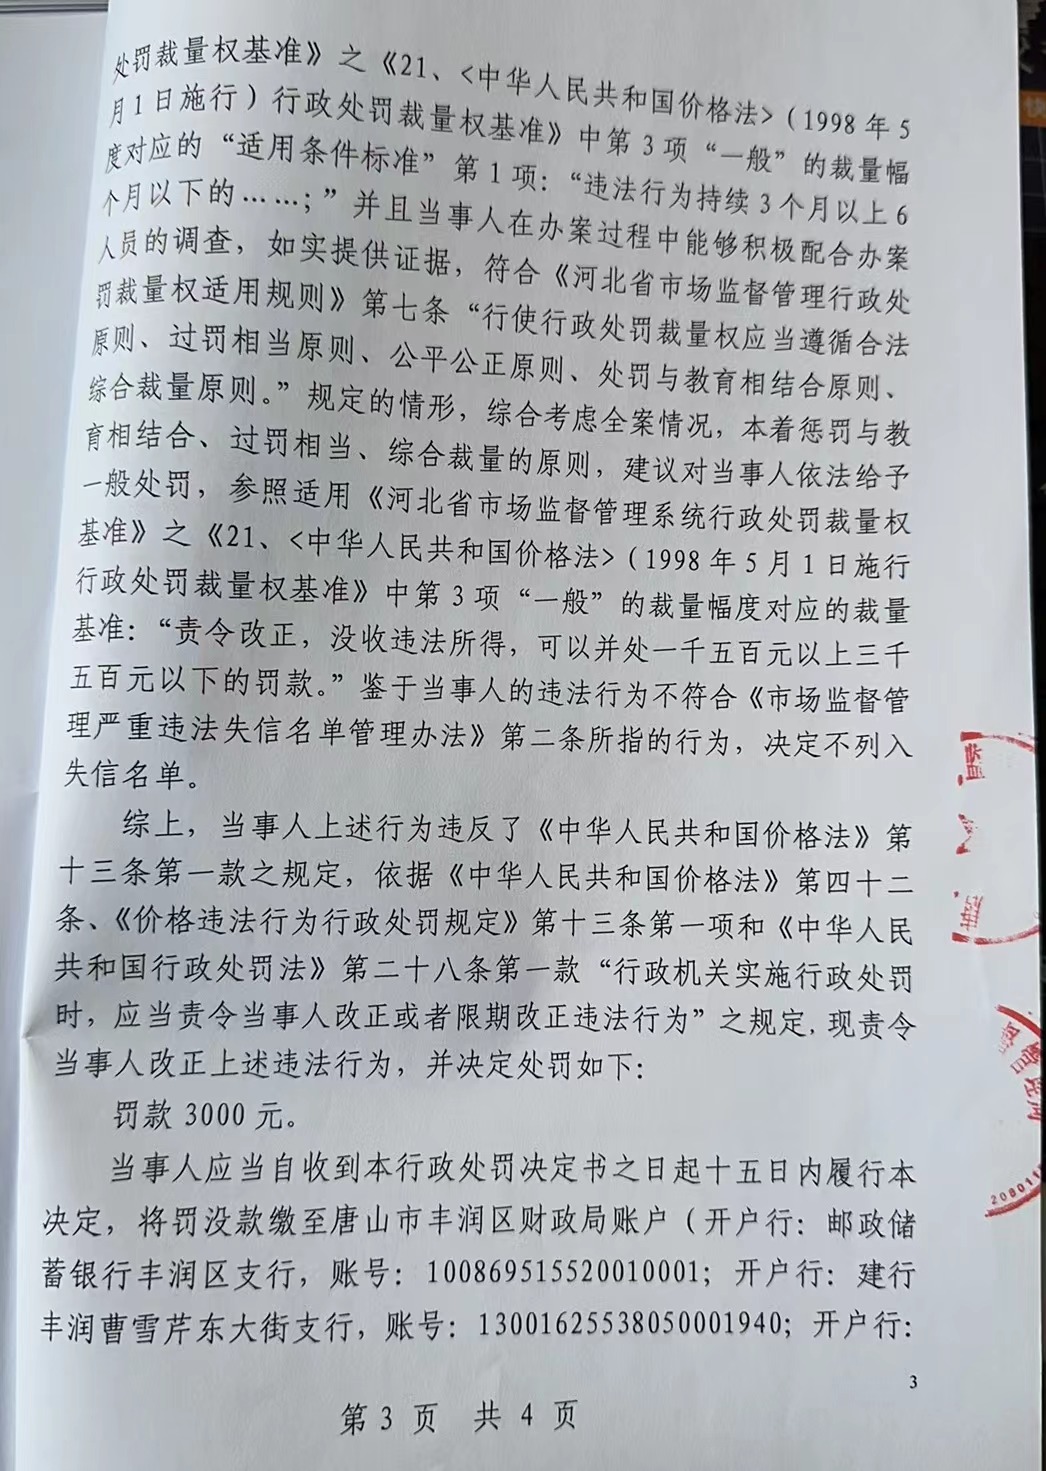 处罚裁量权基准》之《21、<中华人民共和国价格法>（1998 年 5
月 1 日施行）行政处罚裁量权基准》中第 3 项“一般”的裁量幅
度对应的“适用条件标准”第 1 项：“违法行为持续 3 个月以上 6
个月以下的……；”并且当事人在办案过程中能够积极配合办案
人员的调查，如实提供证据，符合《河北省市场监督管理行政处
罚裁量权适用规则》第七条“行使行政处罚裁量权应当遵循合法
原则、过罚相当原则、公平公正原则、处罚与教育相结合原则、
综合裁量原则。”规定的情形，综合考虑全案情况，本着惩罚与教
育相结合、过罚相当、综合裁量的原则，建议对当事人依法给予
一般处罚，参照适用《河北省市场监督管理系统行政处罚裁量权
基准》之《21、<中华人民共和国价格法>（1998 年 5 月 1 日施行
行政处罚裁量权基准》中第 3 项“一般”的裁量幅度对应的裁量
基准：“责令改正，没收违法所得，可以并处一千五百元以上三千
五百元以下的罚款。”鉴于当事人的违法行为不符合《市场监督管
理严重违法失信名单管理办法》第二条所指的行为，决定不列入
失信名单。
综上，当事人上述行为违反了《中华人民共和国价格法》第
十三条第一款之规定，依据《中华人民共和国价格法》第四十二
条、《价格违法行为行政处罚规定》第十三条第一项和《中华人民
共和国行政处罚法》第二十八条第一款“行政机关实施行政处罚
时，应当责令当事人改正或者限期改正违法行为”之规定,现责令
当事人改正上述违法行为，并决定处罚如下：
罚款 3000 元。
当事人应当自收到本行政处罚决定书之日起十五日内履行本
决定，将罚没款缴至唐山市丰润区财政局账户（开户行：邮政储
蓄银行丰润区支行，账号：100869515520010001；开户行：建行
丰润曹雪芹东大街支行，账号：13001625538050001940；开户行：
3
第 3 页 共 4 页